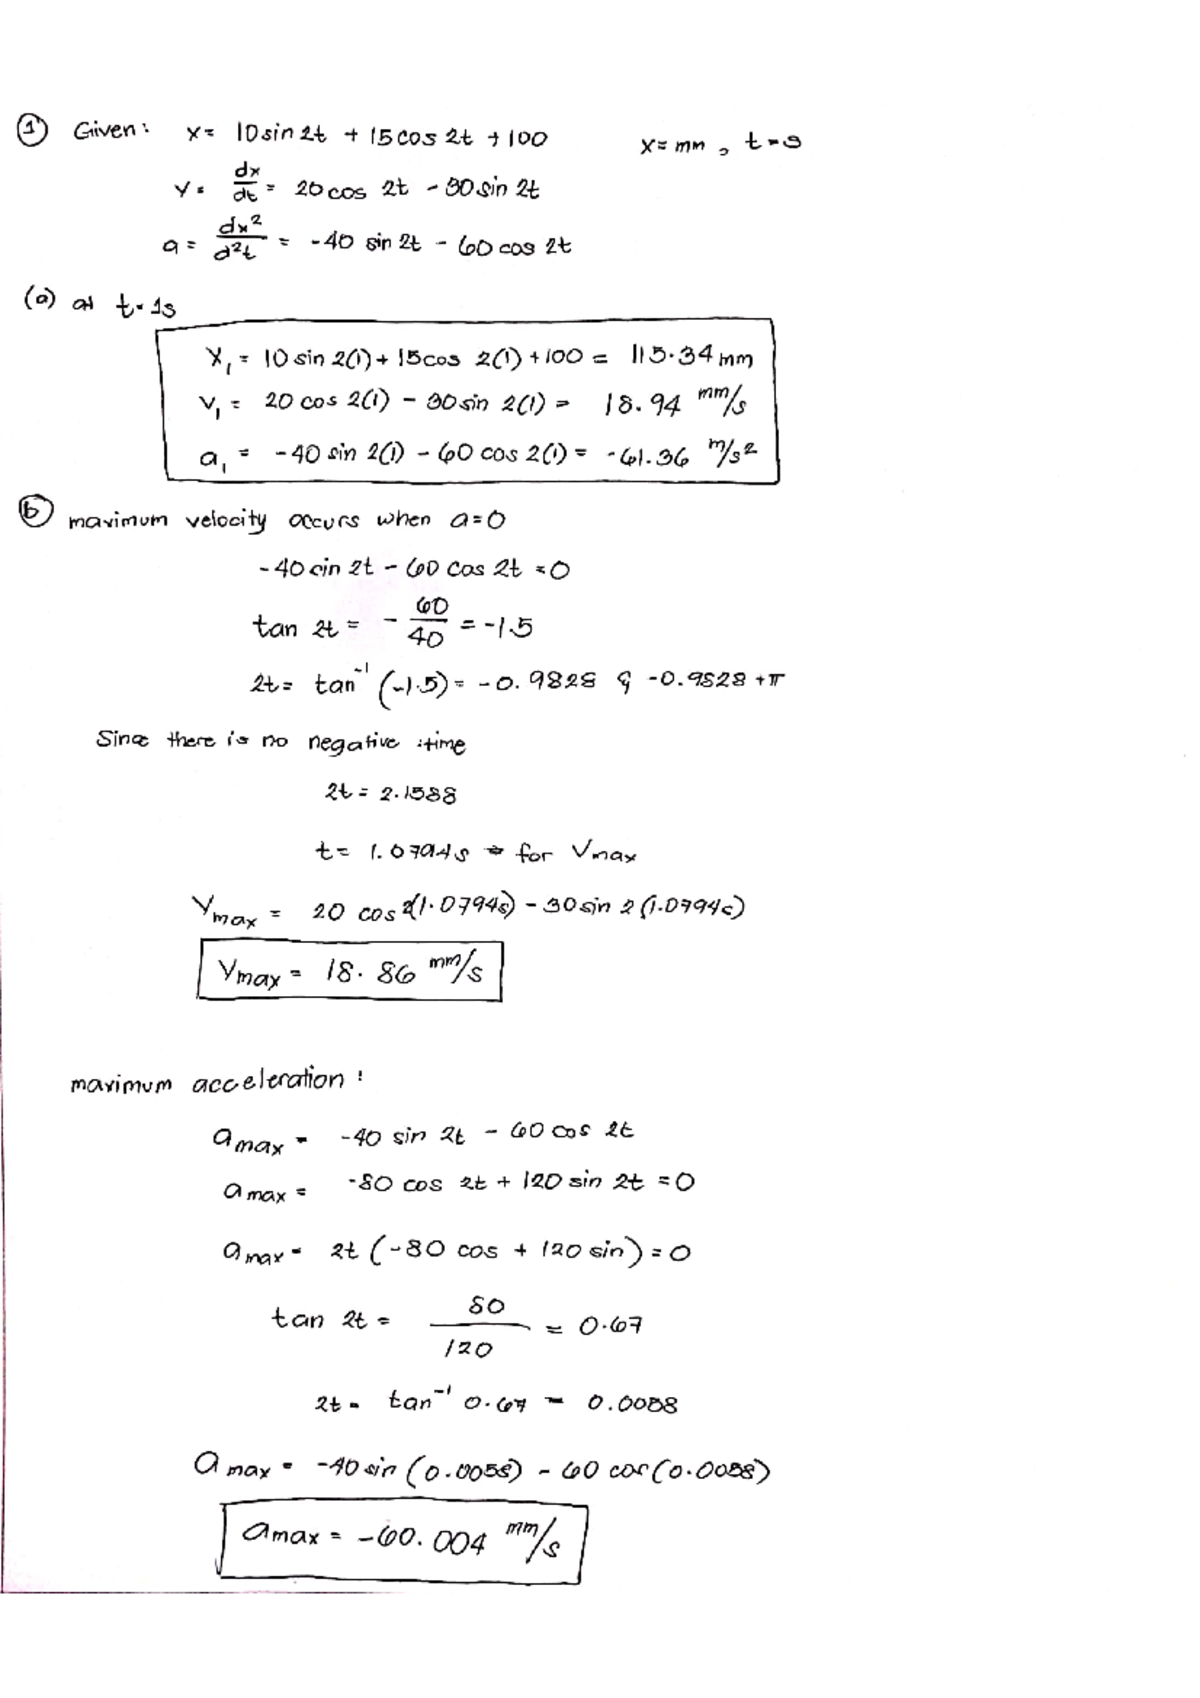 ① Given: x = 10 sin 2t + 15 cos 2t + 100 x = mm, t = s
v = dx/dt = 20 cos 2t - 30 sin 2t
a = dx²/d²t = -40 sin 2t - 60 cos 2t
(a) at t = 1s
x₁ = 10 sin 2(1) + 15 cos 2(1) + 100 = 115.34 mm
v₁ = 20 cos 2(1) - 30 sin 2(1) = 18.94 mm/s
a₁ = -40 sin 2(1) - 60 cos 2(1) = -61.36 m/s²
ⓑ maximum velocity occurs when a=0
-40 sin 2t - 60 cos 2t = 0
tan 2t = - 60/40 = -1.5
2t = tan⁻¹ (-1.5) = -0.9828 & -0.9828 + π
Since there is no negative time
2t = 2.1588
t = 1.0794s ⇒ for Vmax
Vmax = 20 cos 2(1.0794s) - 30 sin 2(1.0794s)
Vmax = 18.86 mm/s
maximum acceleration:
amax = -40 sin 2t - 60 cos 2t
amax = -80 cos 2t + 120 sin 2t = 0
amax = 2t (-80 cos + 120 sin) = 0
tan 2t = 80/120 = 0.67
2t = tan⁻¹ 0.67 = 0.0058
amax = -40 sin (0.0058) - 60 cos (0.0058)
amax = -60.004 mm/s